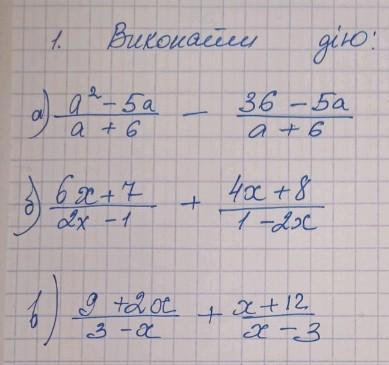 1. Виконати дію:
а) (a² - 5a)/(a + 6) - (36 - 5a)/(a + 6)
б) (6x + 7)/(2x - 1) + (4x + 8)/(1 - 2x)
в) (9 + 2x)/(3 - x) + (x + 12)/(x - 3)